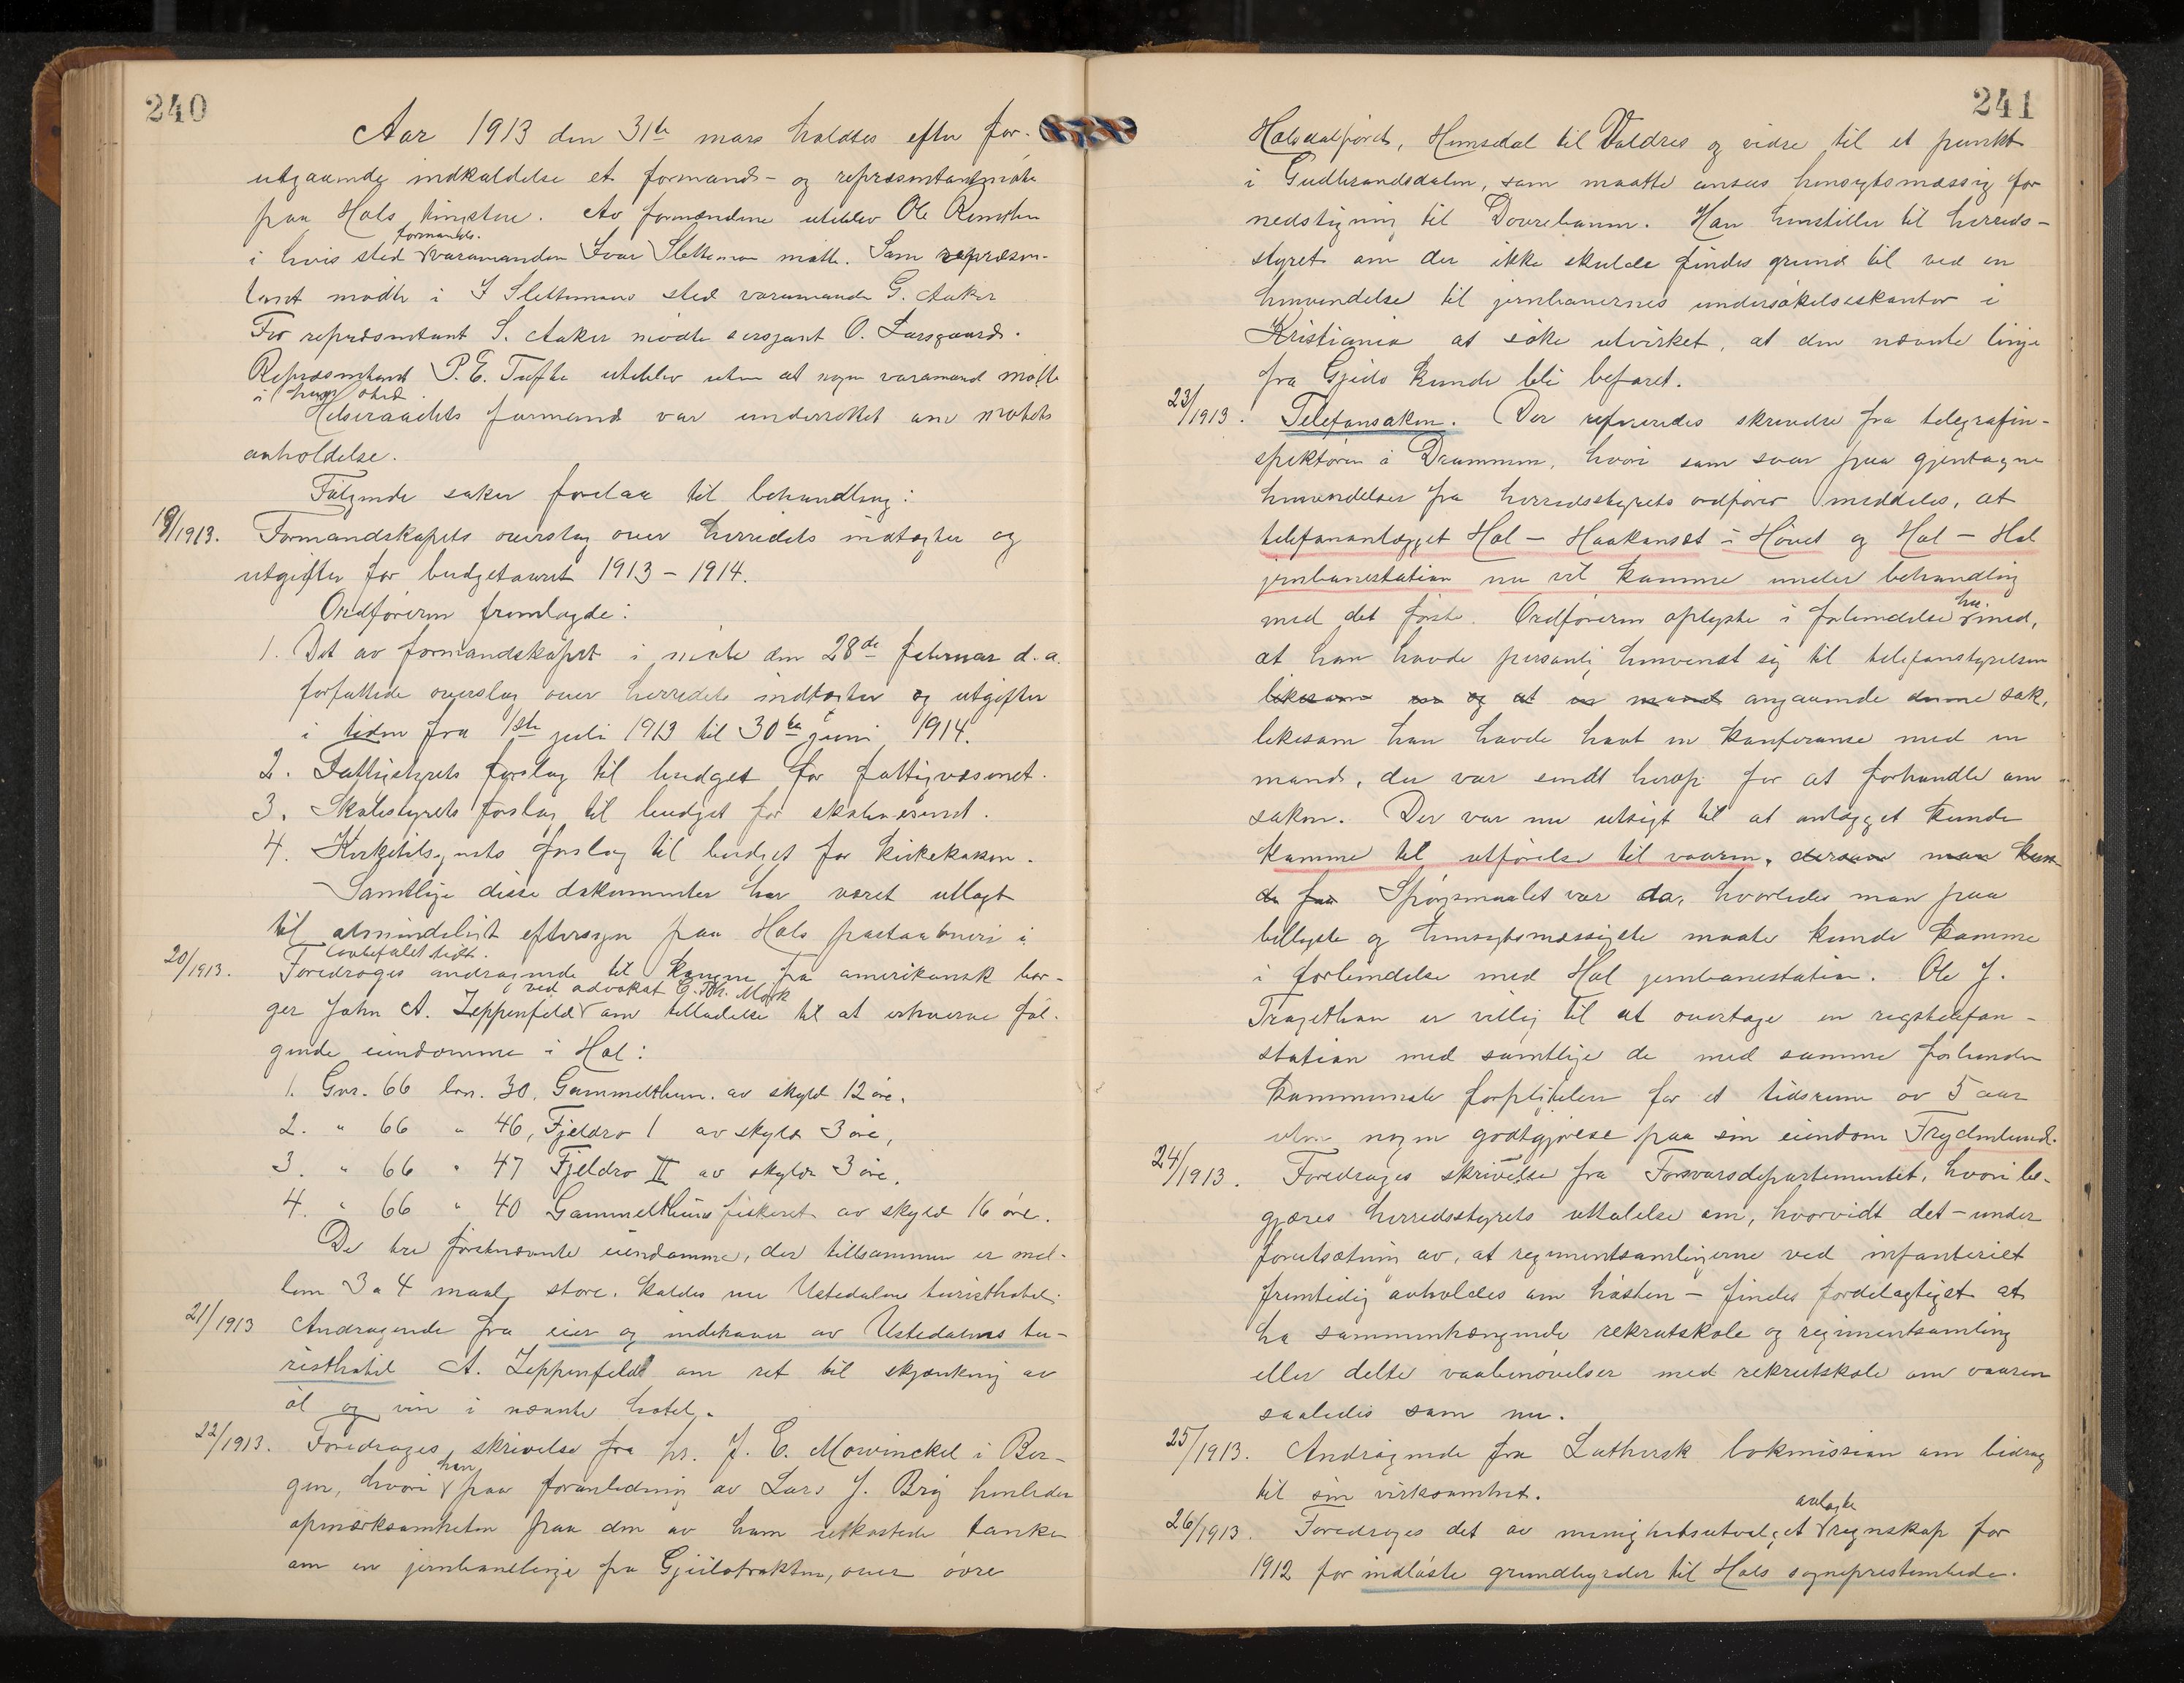 240
Aar 1913 den 31te mars holdtes efter for-
utgaaende indkaldelse et formands- og repræsentantmøte
paa Hols tingstue. Av formændene uteblev Ole
formands-
i hvis sted varamanden Ivar Slettemoen møtte. Som repræsen-
tant mødte i I Slettemoens sted varamand G. Aaker
For repræsentant S. Aaker mødte sersjant O. Larsgaard.
Repræsentant P. E. Tufte uteblev uten at nogen varamand møtte
i hans sted.
Helseraadets formand var underrettet om møtets
avholdelse.
Følgende saker forelaa til behandling:
19/1913. Formandskapets overslag over herredets indtægter og
utgifter for budgetaaret 1913 - 1914.
Ordføreren fremlagde:
1. Det av formandskapet i møte den 28de februar d. a.
forfattede overslag over herredets indtægter og utgifter
i tiden fra 1ste juli 1913 til 30te juni 1914.
2. Fattigstyrets forslag til budget for fattigvæsenet.
3. Skolestyrets forslag til budget for skolevæsenet.
4. Kirketilsynets forslag til budget for kirkekassen.
Samtlige disse dokumenter har været utlagt
til almindeligt eftersyn paa Hols postaabneri i
lovbefalet tid.
20/1913. Foredroges andragende til kongen fra amerikansk bor-
ved advokat C. Th. Mørk
ger John A. Zeppenfeld om tilladelse til at erhverve føl-
gende eiendomme i Hol:
1. Gnr. 66 bnr. 30, Gammelthun. av skyld 12 øre.
2. " 66 " 46, Fjeldro I av skyld 3 øre,
3. " 66 " 47 Fjeldro II av skyld 3 øre.
4. " 66 " 40 Gammelthunsfiskeret av skyld 16 øre.
De tre førstnævnte eiendomme, der tilsammen er mel-
lem 3 a 4 maal store. kaldes nu Ustedalens turisthotel.
21/1913 Andragende fra eier og indehaver av Ustedalens tu-
risthotel A. Zeppenfeldt om ret til skjænkning av
øl og vin i nævnte hotel.
22/1913. Foredroges skrivelse fra hr. J. E. Mowinckel i Ber-
han
gen, hvori paa foranledning av Lars J. Brÿ henleder
opmærksomheten paa den av ham utkastede tanke
om en jernbanelinje fra Gjeilotrakten, over øvre
241
Holsdalføret, Hemsedal til Valdres og videre til et punkt
i Gudbrandsdalen, som maatte ansees hensigtsmæssig for
nedstigning til Dovrebanen. Han henstiller til herreds-
styret om der ikke skulde findes grund til ved en
henvendelse til jernbanernes undersøkelseskontor i
Kristiania at søke utvirket, at den nævnte linje
fra Gjeilo kunde bli befaret.
23/1913. Telefonsaken. Der refereredes skrivelse fra telegrafin-
spektøren i Drammen, hvori som svar paa gjentagne
henvendelser fra herredsstyrets ordfører meddeles, at
telefonanlægget Hol - Haakonset i Hovet og Hol - Hol
jernbanestation nu vil komme under behandling
her-
med det første. Ordføreren oplyste i forbindelse med,
at han havde personlig henvendt sig til telefonstyrelsen
likesom og at en mand angaaende denne sak,
likesom han havde havt en konferanse med en
mand, der var sendt herop for at forhandle om
saken. Der var nu utsigt til at anlægget kunde
komme til utførelse til vaaren, dersom man kun-
de faa Spørsmaalet var da, hvorledes man paa
billigste og hensigtsmæssigste maate kunde komme
i forbindelse med Hol jernbanestation. Ole J.
Trøgethon er villig til at overtage en rigstelefon-
station med samtlige de med samme forbunden
kommunale forpligtelser for et tidsrum av 5 aar
uten nogen godtgjørelse paa sin eiendom Frydenlund.
24/1913. Foredroges skrivelse fra Forsvarsdepartementet, hvori be-
gjæres herredsstyrets uttalelse om, hvorvidt det - under
forutsætning av, at regimentsamlingerne ved infanteriet
fremtidig avholdes om høsten - findes fordelagtigst at
ha sammenhængende rekrutskole og regimentsamling
eller delte vaabenøvelser med rekrutskole om vaaren
saaledes som nu.
25/1913. Andragende fra Luthersk bokmission om bidrag
til sin virksomhet.
avlagte
26/1913. Foredroges det av menighetsutvalget regnskap for
1912 for indløste grundbyrder til Hols sogneprestembede.